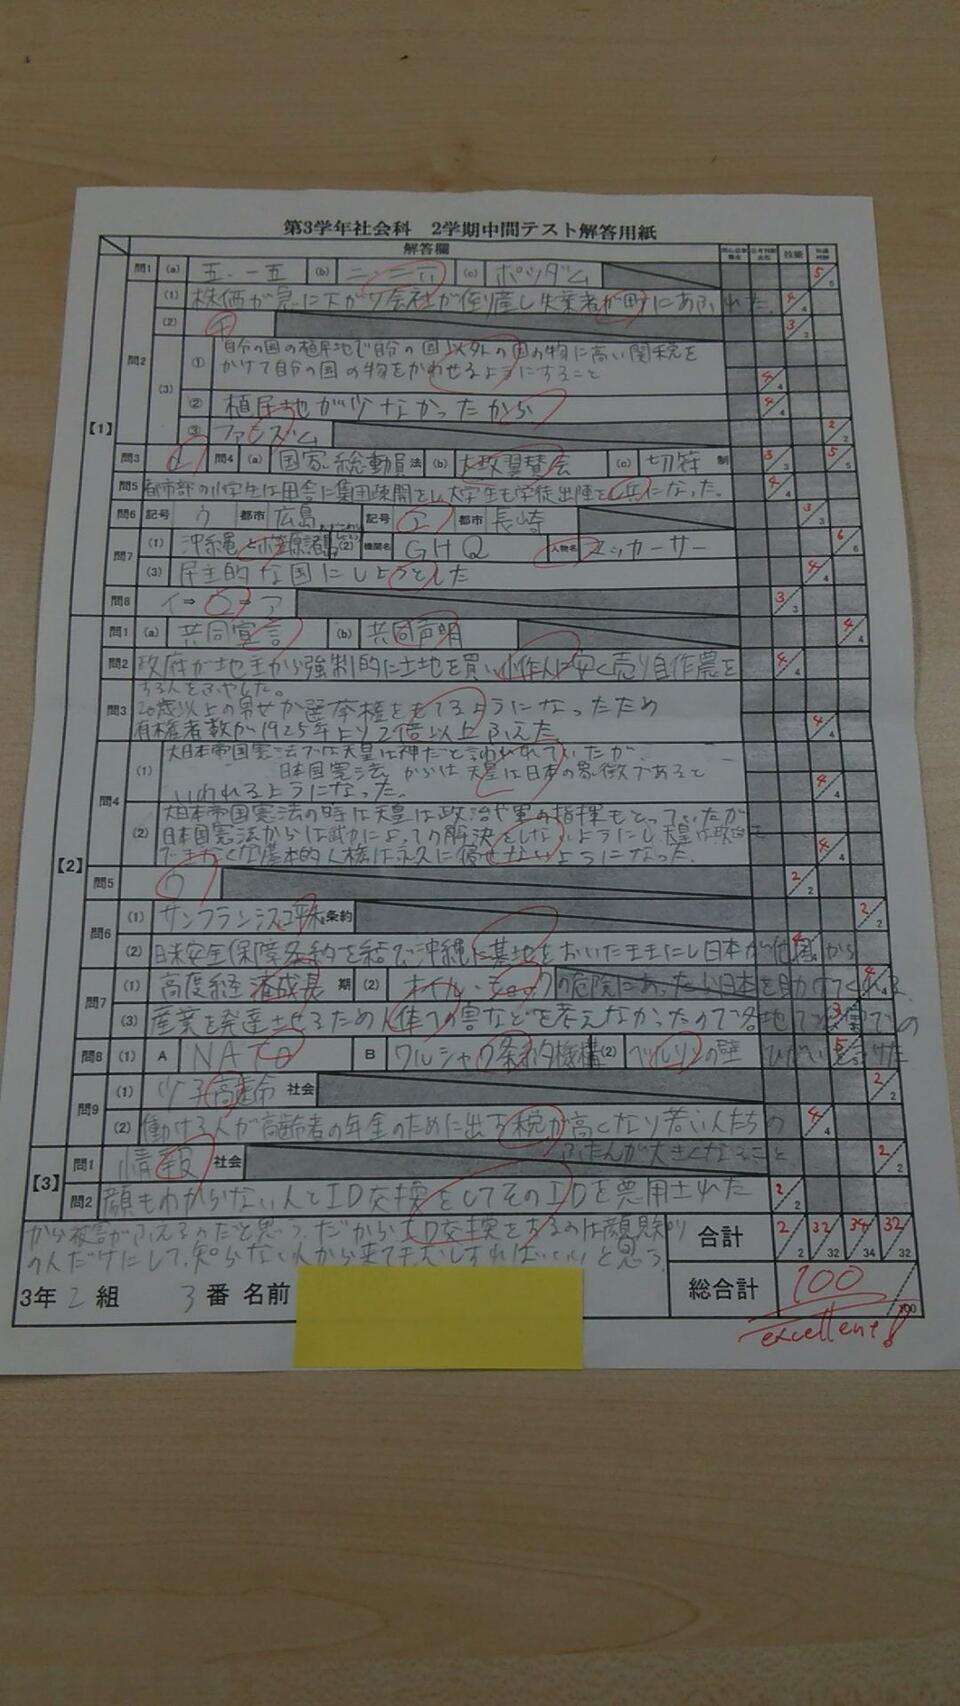 第3学年社会科 2学期中間テスト解答用紙
解答欄 技能
【1】 問1 (a) 五・一五 (b) 二・二六 (c) ポツダム 5/5
問2 (1) 株価が急に下がり会社が倒産し失業者が町にあふれた。 4/4
(2) 3/3
(3) ① 自分の国の植民地で自分の国以外の国の物に高い関税を
かけて自分の国の物をかわせるようにすること 4/4
② 植民地が少なかったから 4/4
③ ファシズム 2/2
問3 問4 (a) 国家総動員 法 (b) 大政翼賛会 (c) 切符 制 3/3 5/5
問5 都市部の小学生は田舎に集団疎開をし、大学生も学徒出陣をし兵になった。 4/4
問6 記号 ウ 都市 広島 記号 エ 都市 長崎 3/3
問7 (1) 沖縄と小笠原諸島 (2) 機関名 GHQ 人物名 マッカーサー 6/6
(3) 民主的な国にしようとした 4/4
問8 イ⇒ウ⇒ア 3/3
【2】 問1 (a) 共同宣言 (b) 共同声明 4/4
問2 政府が地主から強制的に土地を買い小作人に安く売り自作農を
する人をふやした。 4/4
問3 20歳以上の男女が選挙権をもてるようになったため
有権者数が1925年より2倍以上ふえた 4/4
問4 (1) 大日本帝国憲法では天皇は神だと言われていたが
日本国憲法からは天皇は日本の象徴であると
いわれるようになった。 4/4
(2) 大日本帝国憲法の時は天皇は政治や軍の指揮もとっていたが
日本国憲法からは武力によっての解決をしないようにし天皇は政治も
できなくなり基本的人権は永久に侵せないようになった。 4/4
問5 ウ 2/2
問6 (1) サンフランシスコ平和 条約 2/2
(2) 日米安全保障条約を結んで沖縄に基地をおいたままにし日本が他国から
の危険にあったら日本を助けてくれる
問7 (1) 高度経済成長 期 (2) オイル・ショック 4/4
(3) 産業を発達させるため人体への害などを考えなかったので各地で公害での
ひがいをうけた
問8 (1) A NATO B ワルシャワ条約機構 (2) ベルリンの壁 5/5
問9 (1) 少子高齢 社会 2/2
(2) 働ける人が高齢者の年金のために出す税が高くなり若い人たちの
ふたんが大きくなること 4/4
【3】 問1 情報 社会 2/2
問2 顔もわからない人とID交換をしてそのIDを悪用された 2/2
から被害がふえるのだと思う。だからID交換をするのは顔見知り
の人だけにして、知らない人から来ても
ばいいと思う。
合計 2/2 32/32 34/34 32/32
総合計 100/100
excellent!
3年2組 3番 名前